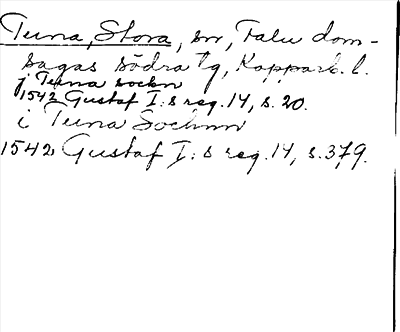 Tuna, Stora, sn, Falu dom-
sagas södra tg, Kopparb. l.
j Tuna sockn
1542 Gustaf I:s reg. 14, s. 20.
i Tuna Sochnn
1542 Gustaf I:s reg. 14, s. 379.